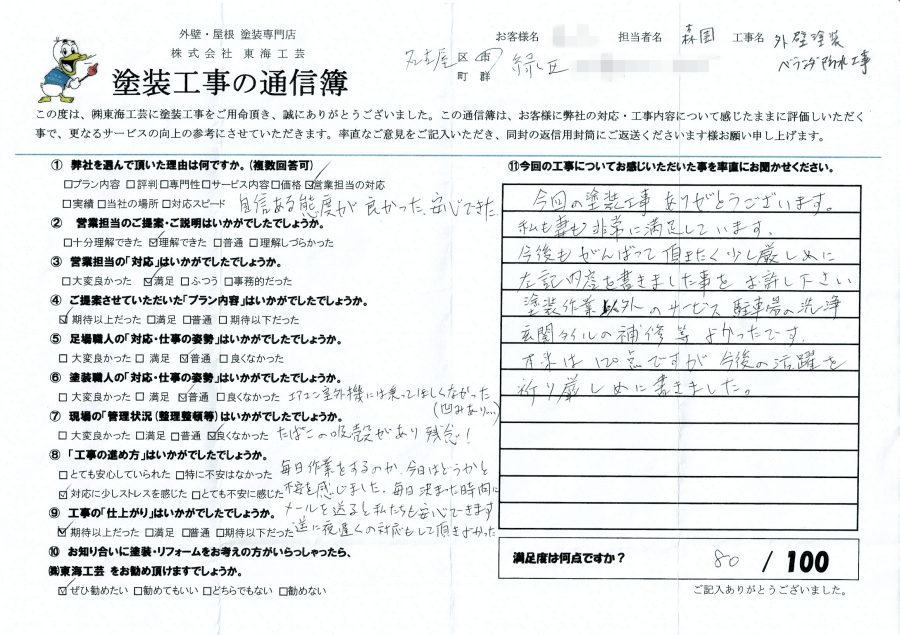 外壁・屋根 塗装専門店
株式会社 東海工芸
塗装工事の通信簿
お客様名 担当者名 森園 工事名 外壁塗装
ベランダ防水工事
名古屋 区市 緑区
町群
この度は、㈱東海工芸に塗装工事をご用命頂き、誠にありがとうございました。この通信簿は、お客様に弊社の対応・工事内容について感じたままに評価しいただく
事で、更なるサービスの向上の参考にさせていただきます。率直なご意見をご記入いただき、同封の返信用封筒にご返送くださいます様お願い申し上げます。
① 弊社を選んで頂いた理由は何ですか。(複数回答可)
□プラン内容 □評判 □専門性 □サービス内容 □価格 ☑営業担当の対応
□実績 □当社の場所 □対応スピード 自信ある態度が良かった、安心できた
② 営業担当のご提案・ご説明はいかがでしたでしょうか。
□十分理解できた ☑理解できた □普通 □理解しづらかった
③ 営業担当の「対応」はいかがでしたでしょうか。
□大変良かった ☑満足 □ふつう □事務的だった
④ ご提案させていただいた「プラン内容」はいかがでしたでしょうか。
☑期待以上だった □満足 □普通 □期待以下だった
⑤ 足場職人の「対応・仕事の姿勢」はいかがでしたでしょうか。
□大変良かった □満足 ☑普通 □良くなかった
⑥ 塗装職人の「対応・仕事の姿勢」はいかがでしたでしょうか。
□大変良かった □満足 ☑普通 □良くなかった エアコン室外機には乗ってほしくなかった
(凹みあり…)
⑦ 現場の「管理状況(整理整頓等)はいかがでしたでしょうか。
□大変良かった □満足 □普通 ☑良くなかった たばこの吸殻があり残念!
⑧ 「工事の進め方」はいかがでしたでしょうか。
□とても安心していられた □特に不安はなかった 毎日作業をするのか、今日はどうかと
☑対応に少しストレスを感じた □とても不安に感じた 不安を感じました。毎日決まった時間に
メールを送ると私たちも安心できます
⑨ 工事の「仕上がり」はいかがでしたでしょうか。
☑期待以上だった □満足 □普通 □期待以下だった 逆に夜遅くの対応もして頂きよかった
⑩ お知り合いに塗装・リフォームをお考えの方がいらっしゃったら、
㈱東海工芸 をお勧め頂けますでしょうか。
☑ぜひ勧めたい □勧めてもいい □どちらでもない □勧めない
⑪今回の工事についてお感じいただいた事を率直にお聞かせください。
今回の塗装工事ありがとうございます。
私も妻も非常に満足しています。
今後もがんばって頂きたく少し厳しめに
左記内容を書きました事をお許し下さい
塗装作業以外のサービス 駐車場の洗浄
玄関タイルの補修等よかったです。
本来は120点ですが今後の活躍を
祈り厳しめに書きました。
満足度は何点ですか? 80 / 100
ご記入ありがとうございました。